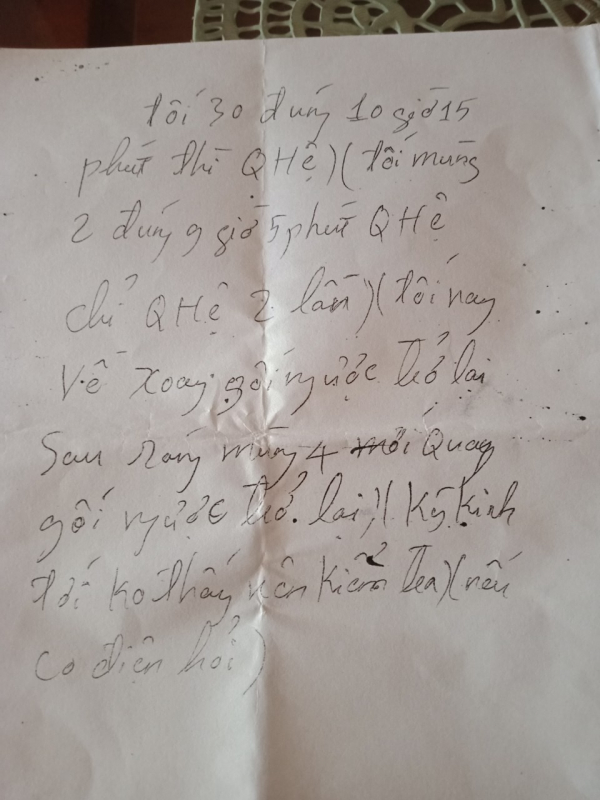 tối 30 đúng 10 giờ 15
phút thì QHệ)(tối mùng
2 đúng 9 giờ 5 phút QHệ
chỉ QHệ 2 lần)(tối nay
Về xoay gối ngược trở lại
Sau sáng mùng 4 mới Quay
gối ngược trở lại)(Kỳ Kinh
tới Ko thấy nên Kiểm tra)(nếu
co điện hỏi)